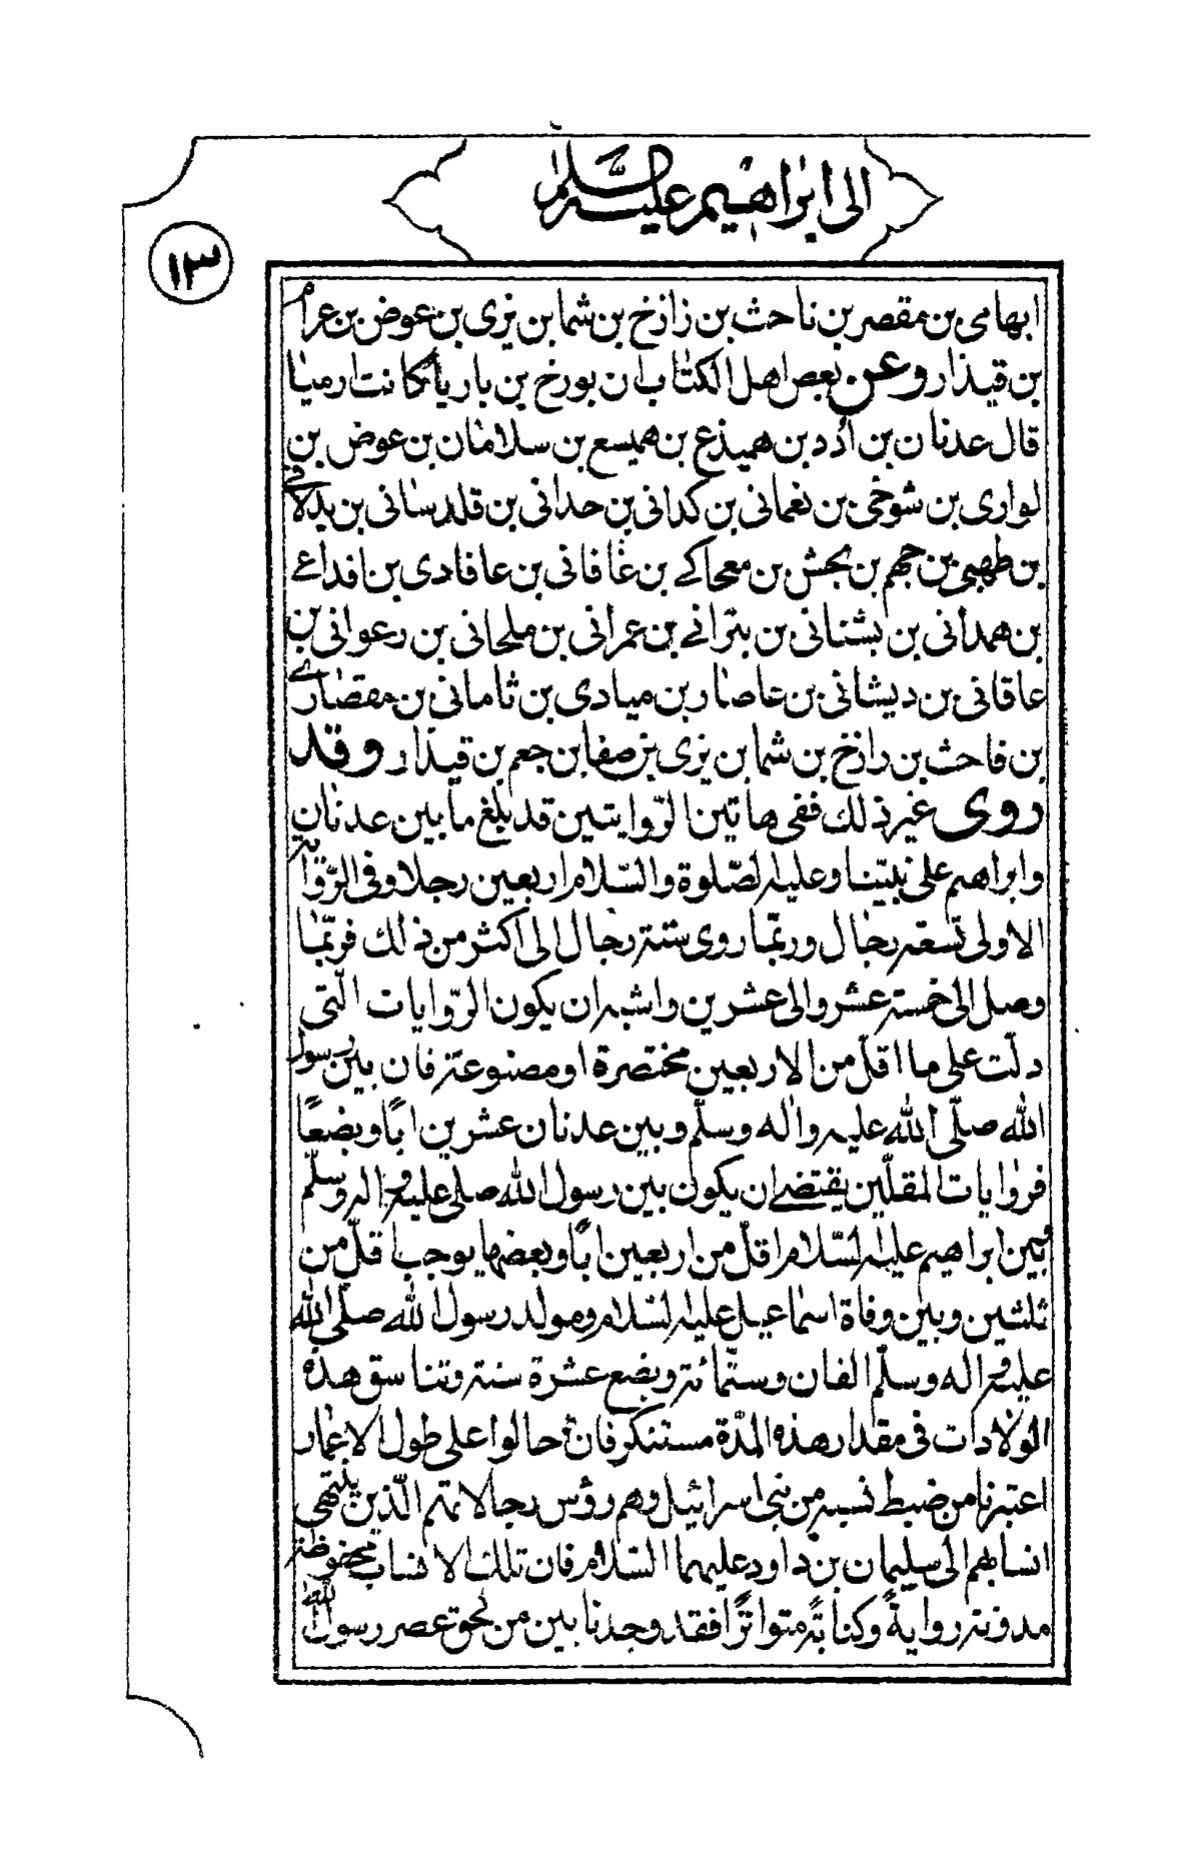 الى ابراهيم عليه السلام
١٣
ابهامى بن مقصر بن ناحث بن زازخ بن شما بن يزى بن عوض بن عرام
بن قيذار وعن بعض اهل الكتاب ان بورخ بن باريا كاتب ارميا
قال عدنان بن أدد بن هميذع بن هميسع بن سلامان بن عوض بن
لوارى بن شوخى بن نعمانى بن كدانى بن حدانى بن قلدسانى بن يدلافى
بن طهبى بن جهم بن بجش بن معجاكے بن عافانى بن عاقادى بن افداعے
بن همدانى بن بشنانى بن بثرانے بن عمرانى بن ملحانى بن رعوانى بن
عاقانى بن ديشانى بن عاصار بن ميادى بن ثامانى بن مقصارے
بن فاحث بن رازخ بن شما بن يزى بن صفا بن جعم بن قيذار وقد
روى غير ذلك ففى هاتين الرّوايتين قد بلغ ما بين عدنان
وابراهيم على نبيّنا وعليه الصّلوة والسّلام اربعين رجلا وفى الرّواية
الاولى تسعة رجال وربّما روى ستة رجال الى اكثر من ذلك فربّما
وصل الى خمسة عشر والى عشرين واشبه ان يكون الرّوايات الّتى
دلّت على ما اقلّ من الاربعين مختصرة او مصنوعة فان بين رسول
الله صلّى الله عليه واله وسلّم وبين عدنان عشرين ابًا وبضعًا
فروايات المقلّين يقتضے ان يكون بين رسول الله صلى عليه واله وسلّم
وبين ابراهيم عليه السّلام اقلّ من اربعين ابًا وبعضها يوجب اقلّ من
ثلثين وبين وفاة اسماعيل عليه السّلام ومولد رسول الله صلّى الله
عليه واله وسلّم الفان وستّمائة وبضع عشرة سنة وتناسق هذه
الولادات فى مقدار هذه المدّة مستنكر فان حالوا على طول الاعمار
اعتبرنا من ضبط نسبه من بنى اسرائيل وهم رؤس رجالاتهم الّذين ينتهى
انسابهم الى سليمان بن داود عليهما السّلام فان تلك الانساب محفوظة
مدونة روايةً وكتابةً متواترًا فقد وجدنا بين من لحق عصر رسول الله